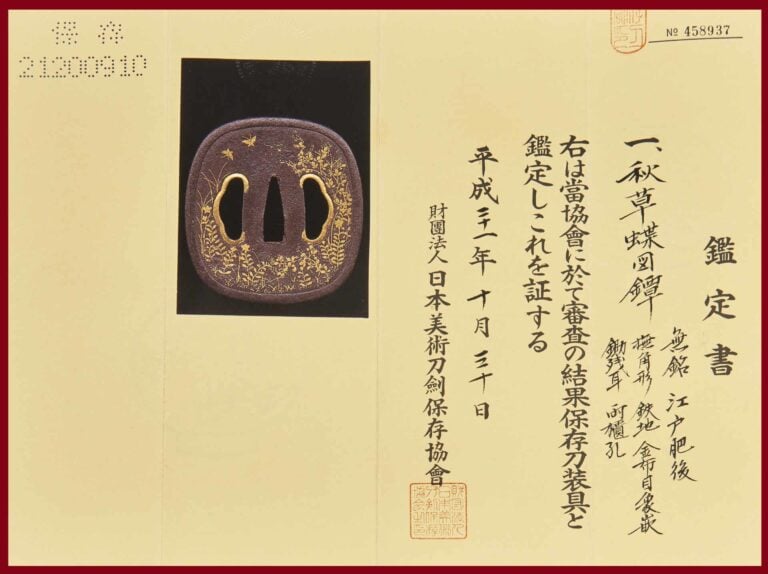 鑑定書
一、秋草蝶図鐔
無銘 江戸肥後
撫角形 鉄地 金布目象嵌
鋤残耳 両櫃孔
右は當協會に於て審査の結果保存刀装具と
鑑定しこれを証する
平成二十一年 十月 三十日
財團法人 日本美術刀劍保存協會
№ 458937
保存
21200910